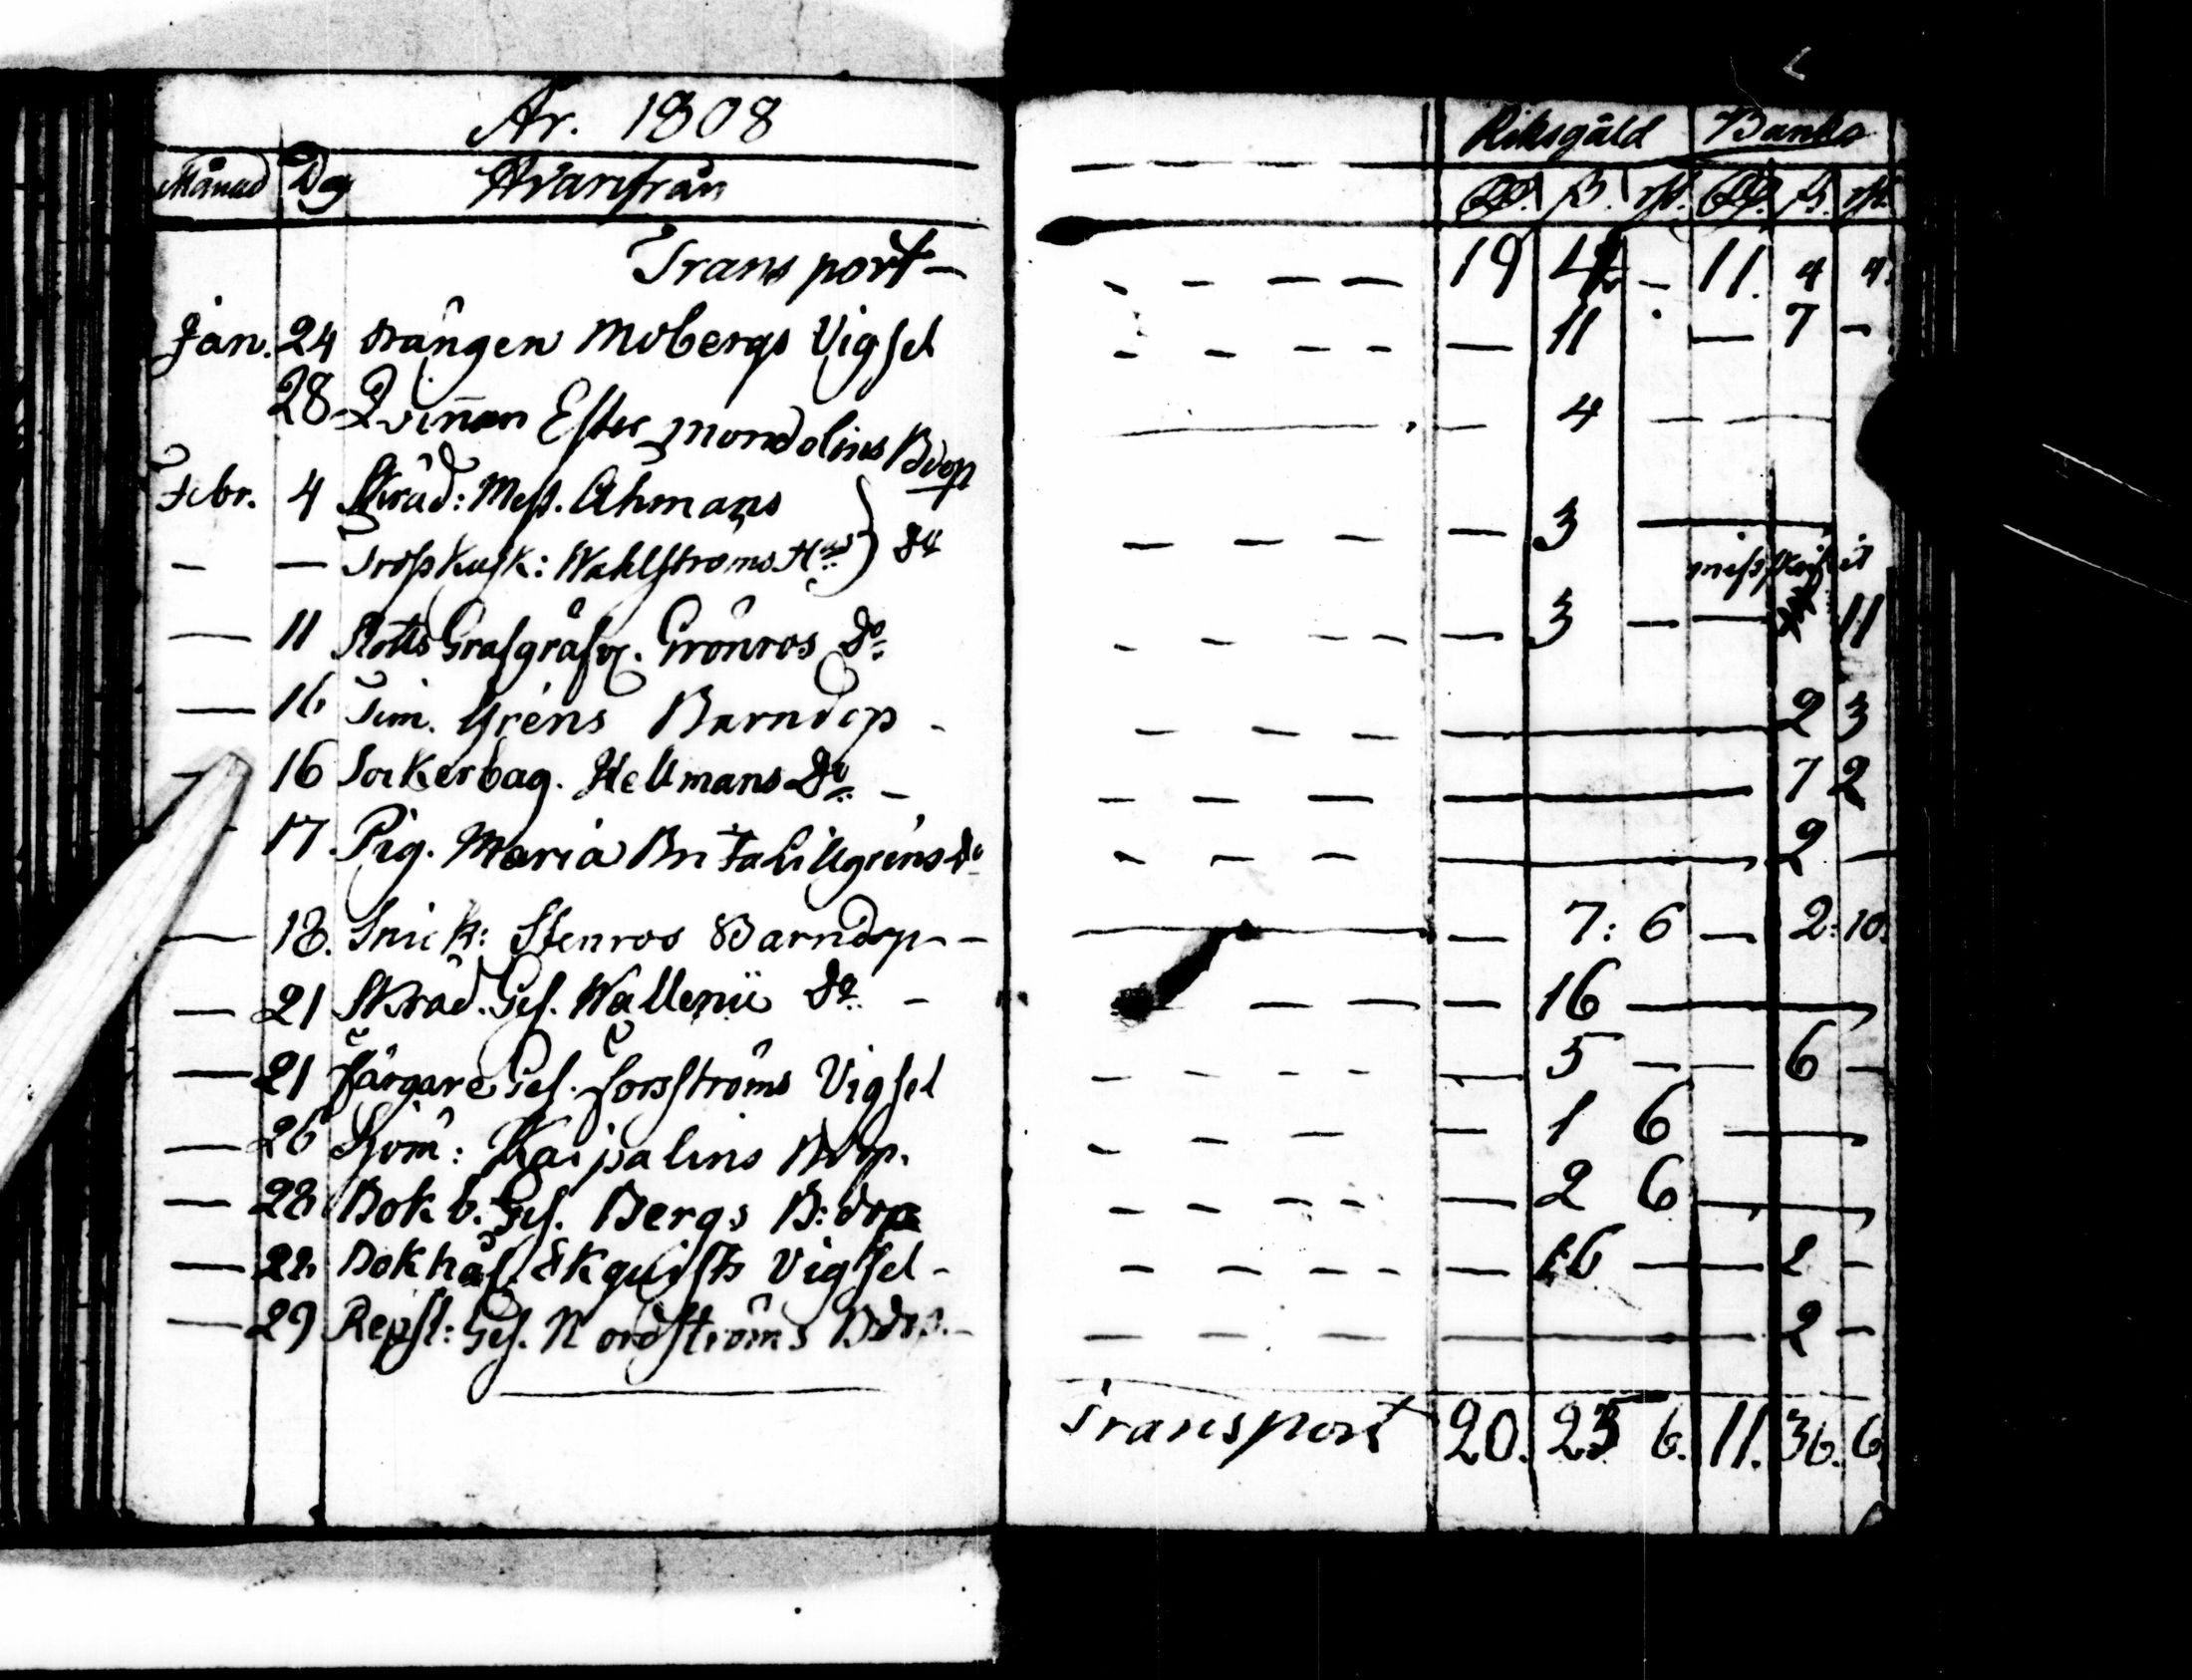 År. 1808
Riksgäld Banko
Månad Dag Hvarifrån
Rd. ß. rst. Rd. ß. rst.
Transport - 19 4 - 11. 4 4.
Jan. 24 drängen Mobergs Vigsel - 11 - 7 -
28 Qvinnan Ester Mondolins Bdop - 4 - -
Febr. 4 Skräd: Mest. Åhmans
- - Trosskusk: Wahlströms } do - 3 -
- 11 Slotts Grafgräfv. Grönros do - 3 - - 11
- 16 Tim. Grens Barndop - 2 3
- 16 Sockerbag. Hellmans do - 7 2
17. Pig. Maria Brita Lillgrens do 2 -
- 18. Snick: Stenros Barndop - - 7: 6 - 2: 10.
- 21 Skräd. Ges. Wallenii do - - 16 -
- 21 Färgare Ges. Forsströms Vigsel - 5 - - 6 -
- 26 Sjöm: Kaipalins Bdop. - 1 6 -
- 28 Bokb. Ges. Bergs B:dop - 2 6 -
- 28 Bokhål. Ekquists Vigsel - - 16 - 2 -
- 29 Repsl: Ges. Nordströms Bdop. - 2 -
Transport 20. 25 6. 11. 36. 6.